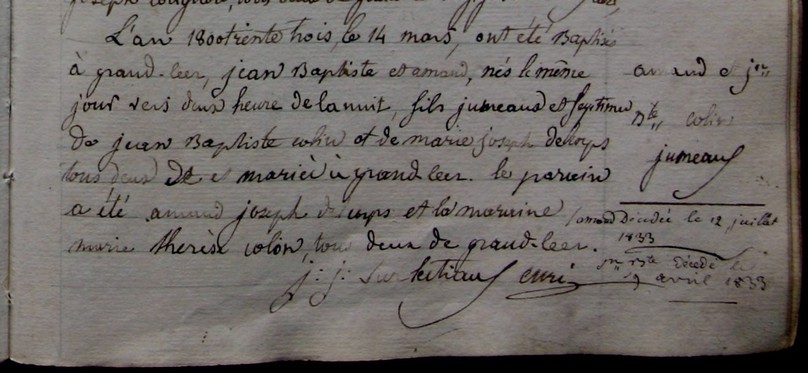 L'an 1800trente trois, le 14 mars, ont été Baptisés
à grand-leer, jean Baptiste et amand, nés le même
jour vers deux heure de la nuit, fils jumeaux et légitimes
de jean Baptiste colin et de marie joseph delorps
tous deux de et mariés à grand-leer. le parain
a été amand joseph delorps et la maraine
marie thérèse colon, tous deux de grand-leer.
j: j: curé
amand et jn
Bte colin
jumeaux
amand Décédée le 12 juillet
1833
jn Bte décédé le
19 avril 1833